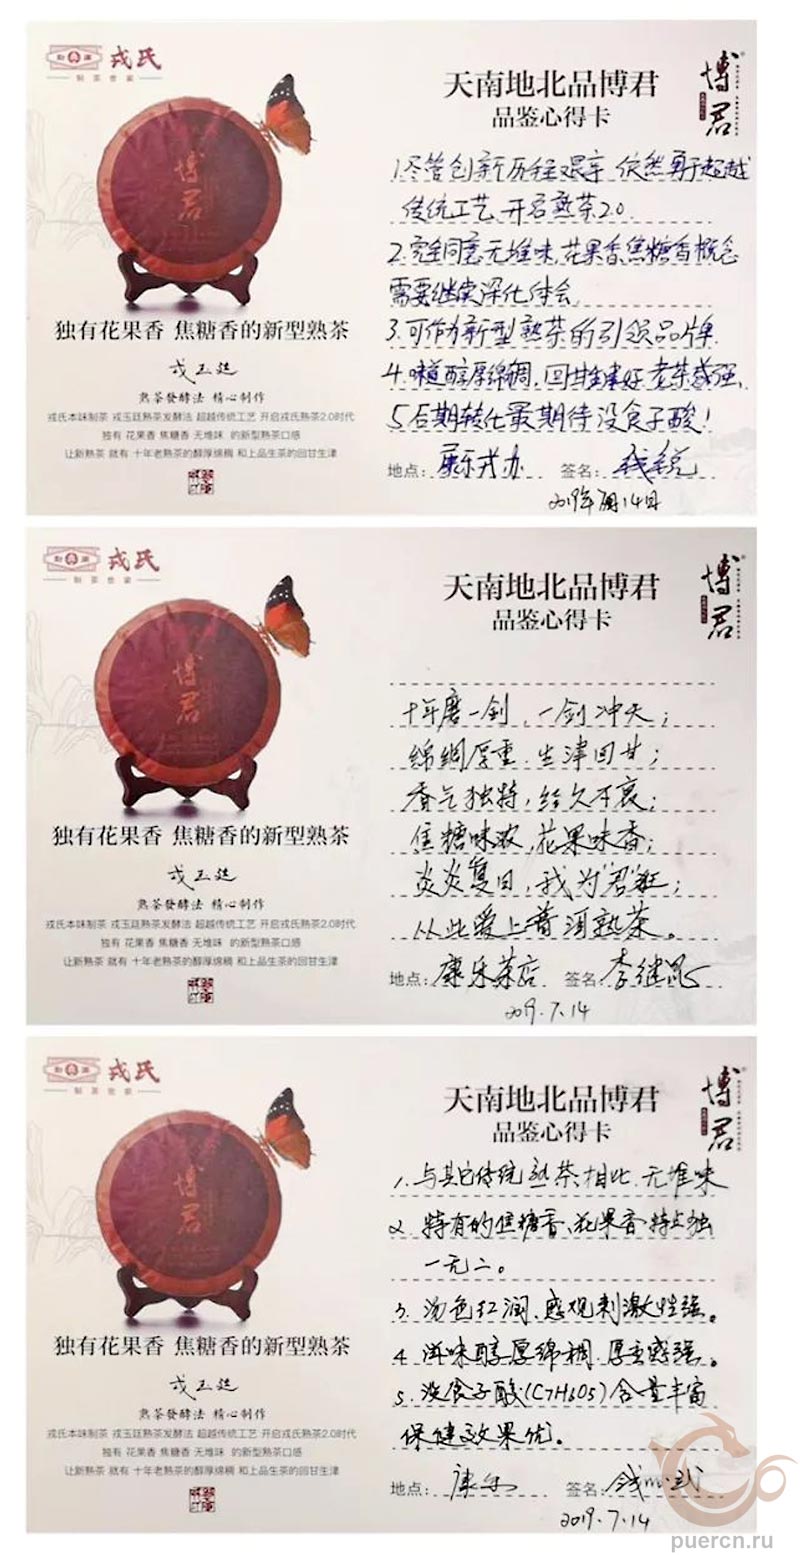 勐康 戎氏
制茶世家
博君
独有花果香 焦糖香的新型熟茶
戎玉廷
熟茶發酵法 精心制作
戎氏本味制茶 戎玉廷熟茶发酵法 超越传统工艺 开启戎氏熟茶2.0时代
独有 花果香 焦糖香 无堆味 的新型熟茶口感
让新熟茶 就有 十年老熟茶的醇厚绵稠 和上品生茶的回甘生津
天南地北品博君
品鉴心得卡
博君
1.尽管创新历程艰辛 依然勇于超越
传统工艺.开启熟茶2.0.
2.完全同意无堆味,花果香焦糖香概念
需要继续深化体会
3.可作为新型熟茶的引领品牌.
4.味道醇厚绵稠.回甘生津好.老茶感强.
5.后期转化最期待没食子酸!
地点: 康乐戎办 签名:
2019年7月14日
戎氏
制茶世家
博君
独有花果香 焦糖香的新型熟茶
戎玉廷
熟茶發酵法 精心制作
戎氏本味制茶 戎玉廷熟茶发酵法 超越传统工艺 开启戎氏熟茶2.0时代
独有 花果香 焦糖香 无堆味 的新型熟茶口感
让新熟茶 就有 十年老熟茶的醇厚绵稠 和上品生茶的回甘生津
天南地北品博君
品鉴心得卡
博君
十年磨一剑,一剑冲天;
绵绸厚重.生津回甘;
香气独特,经久不衰;
焦糖味浓,花果味香;
炎炎夏日,我为"君"狂;
从此爱上普洱熟茶。
地点: 康乐茶店 签名: 李继
2019.7.14
戎氏
制茶世家
博君
独有花果香 焦糖香的新型熟茶
戎玉廷
熟茶發酵法 精心制作
戎氏本味制茶 戎玉廷熟茶发酵法 超越传统工艺 开启戎氏熟茶2.0时代
独有 花果香 焦糖香 无堆味 的新型熟茶口感
让新熟茶 就有 十年老熟茶的醇厚绵稠 和上品生茶的回甘生津
天南地北品博君
品鉴心得卡
博君
1.与其它传统熟茶相比.无堆味
2.特有的焦糖香、花果香特点独
一无二。
3.汤色红润、感观刺激性强。
4.滋味醇厚绵稠.厚重感强。
5.没食子酸(C7H6O5)含量丰富
保健效果优。
地点: 康乐 签名:
2019.7.14
puercn.ru